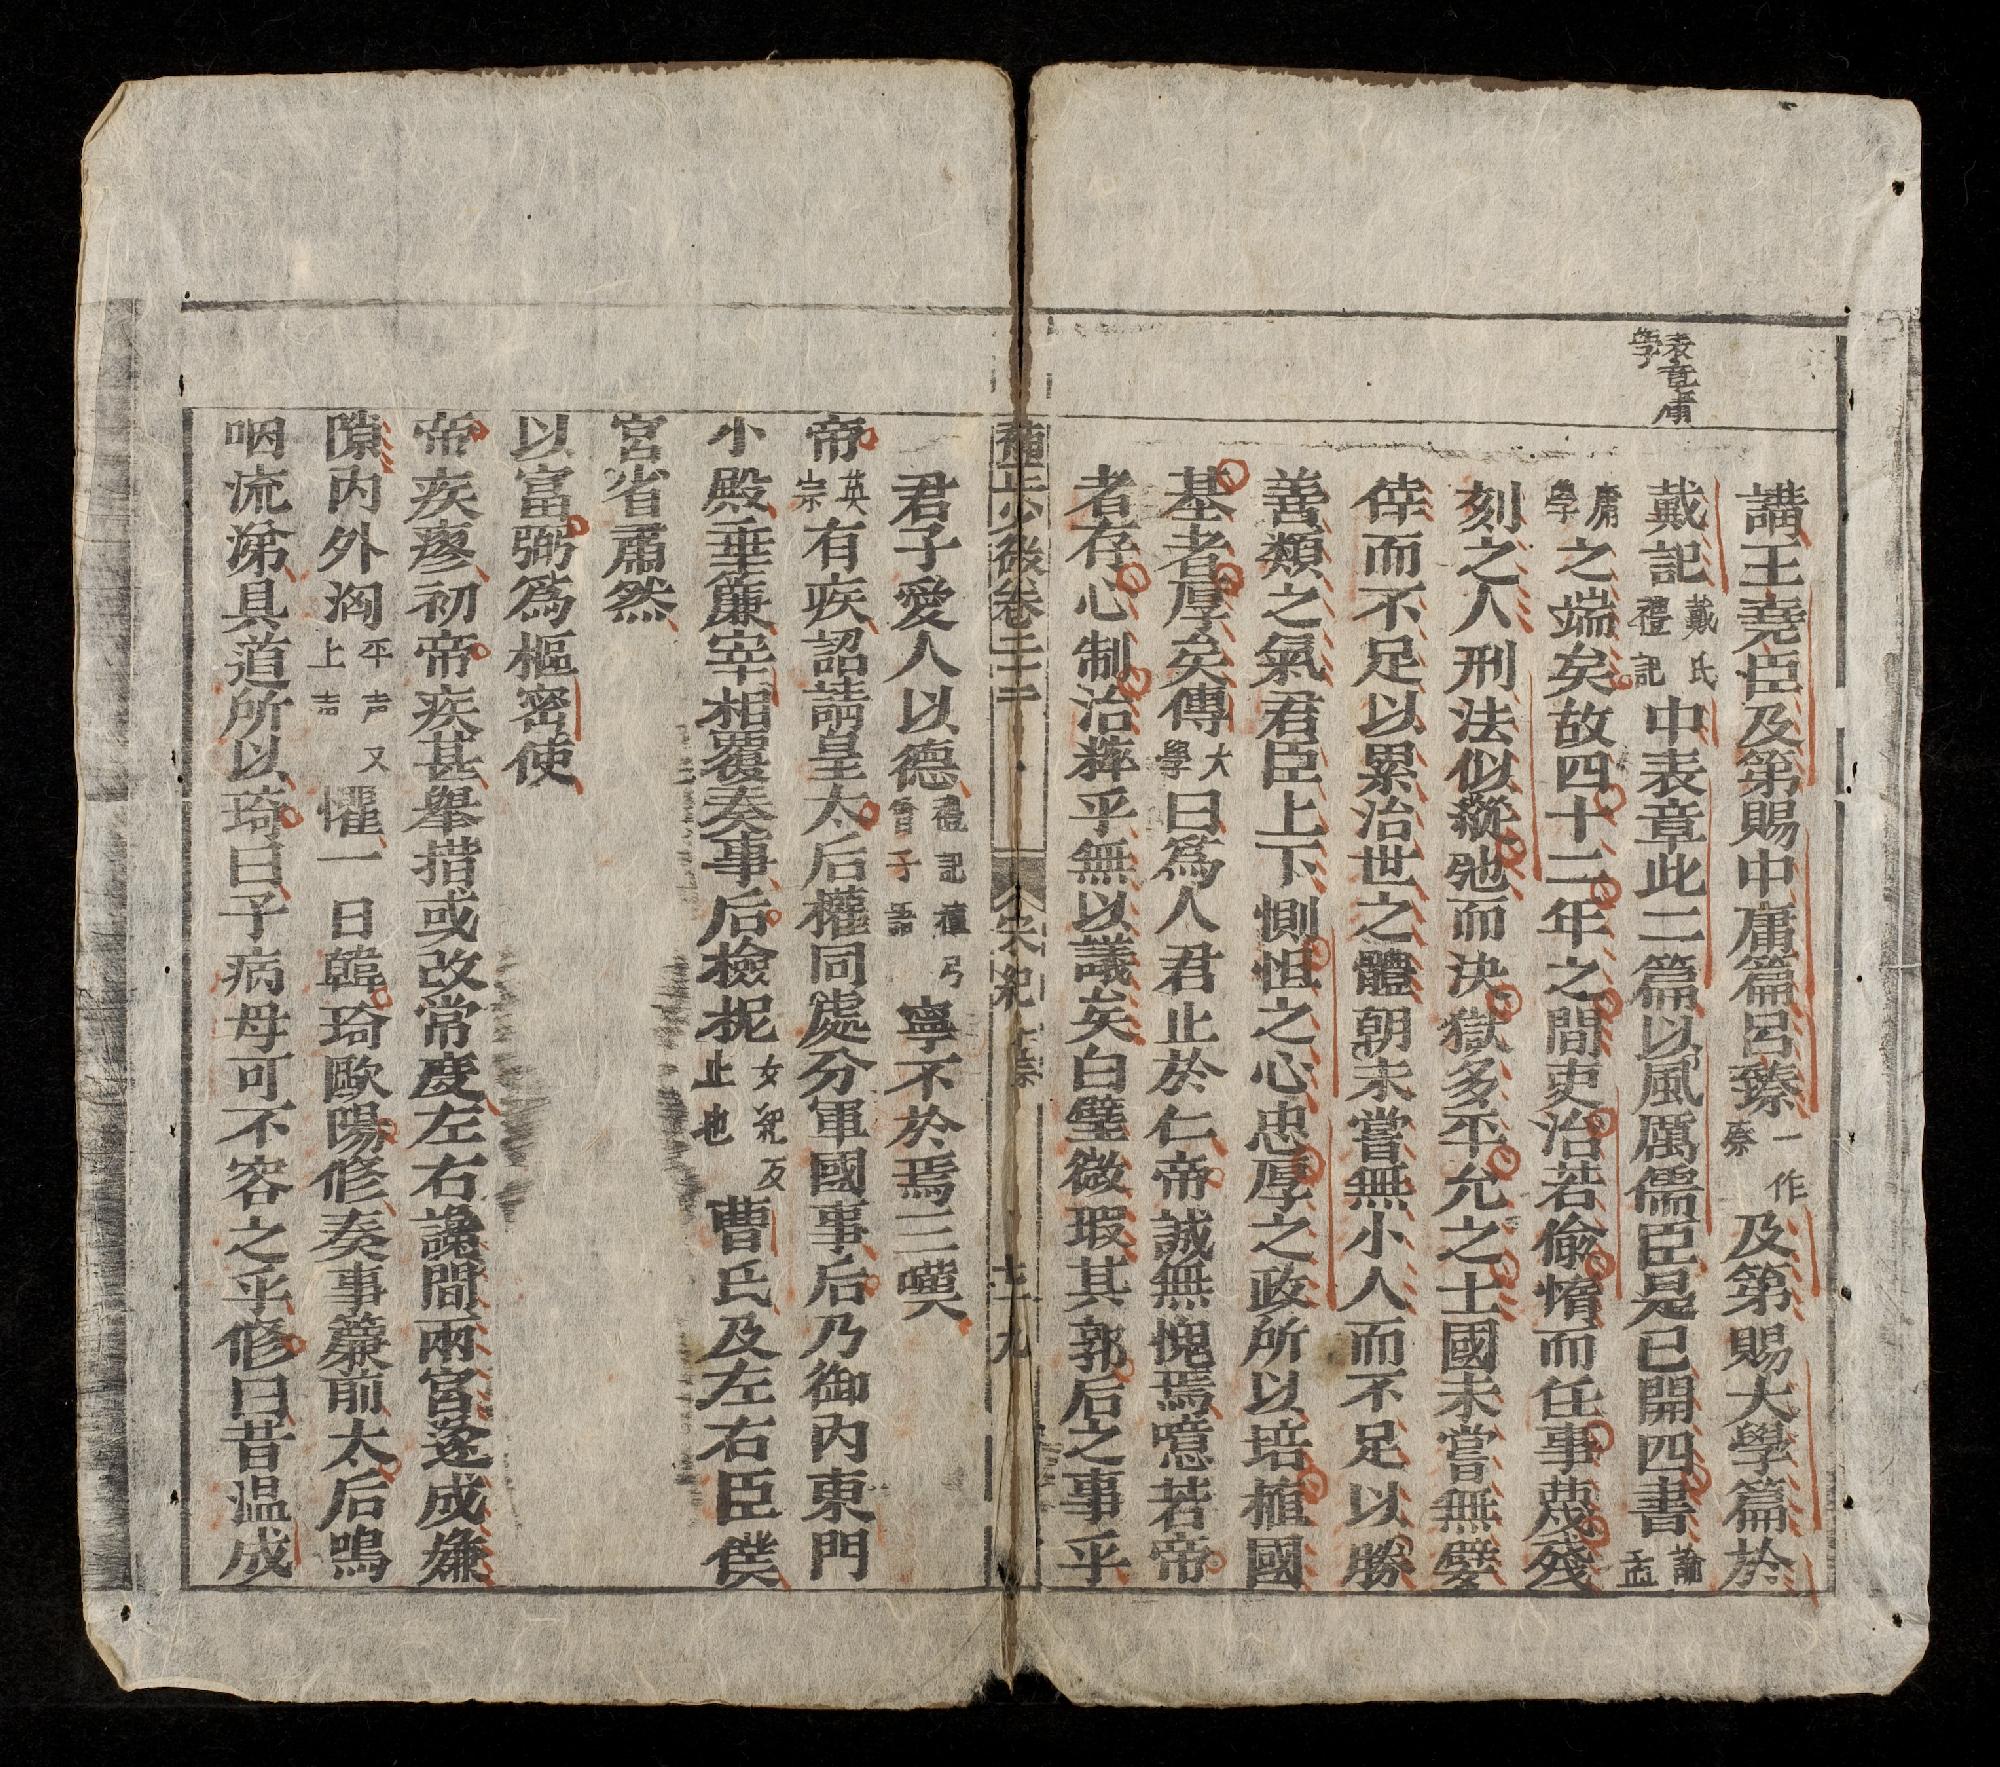 表章庸
學
講王堯臣及第賜中庸篇呂臻一作溱及第賜大學篇於
戴記戴氏禮記中表章此二篇以風厲儒臣是已開四書論孟
庸學之端矣故四十二年之間吏治若偷惰而任事蔑殘
刻之人刑法似縱弛而決獄多平允之士國未嘗無嬖
倖而不足以累治世之體朝未嘗無小人而不足以勝
善類之氣君臣上下惻怛之心忠厚之政所以培植國
基者厚矣傳大學曰爲人君止於仁帝誠無愧焉噫若帝
者存心制治粹乎無以議矣白璧微瑕其郭后之事乎
少微卷二十 宋紀 七十九
君子愛人以德禮記檀弓曾子語寧不於焉三嘆
帝英宗有疾詔請皇太后權同處分軍國事后乃御內東門
小殿垂簾宰相覆奏事后檢抳女紀反止也曹氏及左右臣僕
宮省肅然
以富弼爲樞密使
帝疾瘳初帝疾甚舉措或改常度左右讒間兩宮遂成嫌
隙內外洶平声又上声懼一日韓琦歐陽修奏事簾前太后嗚
咽流涕具道所以琦曰子病母可不容之乎修曰昔温成